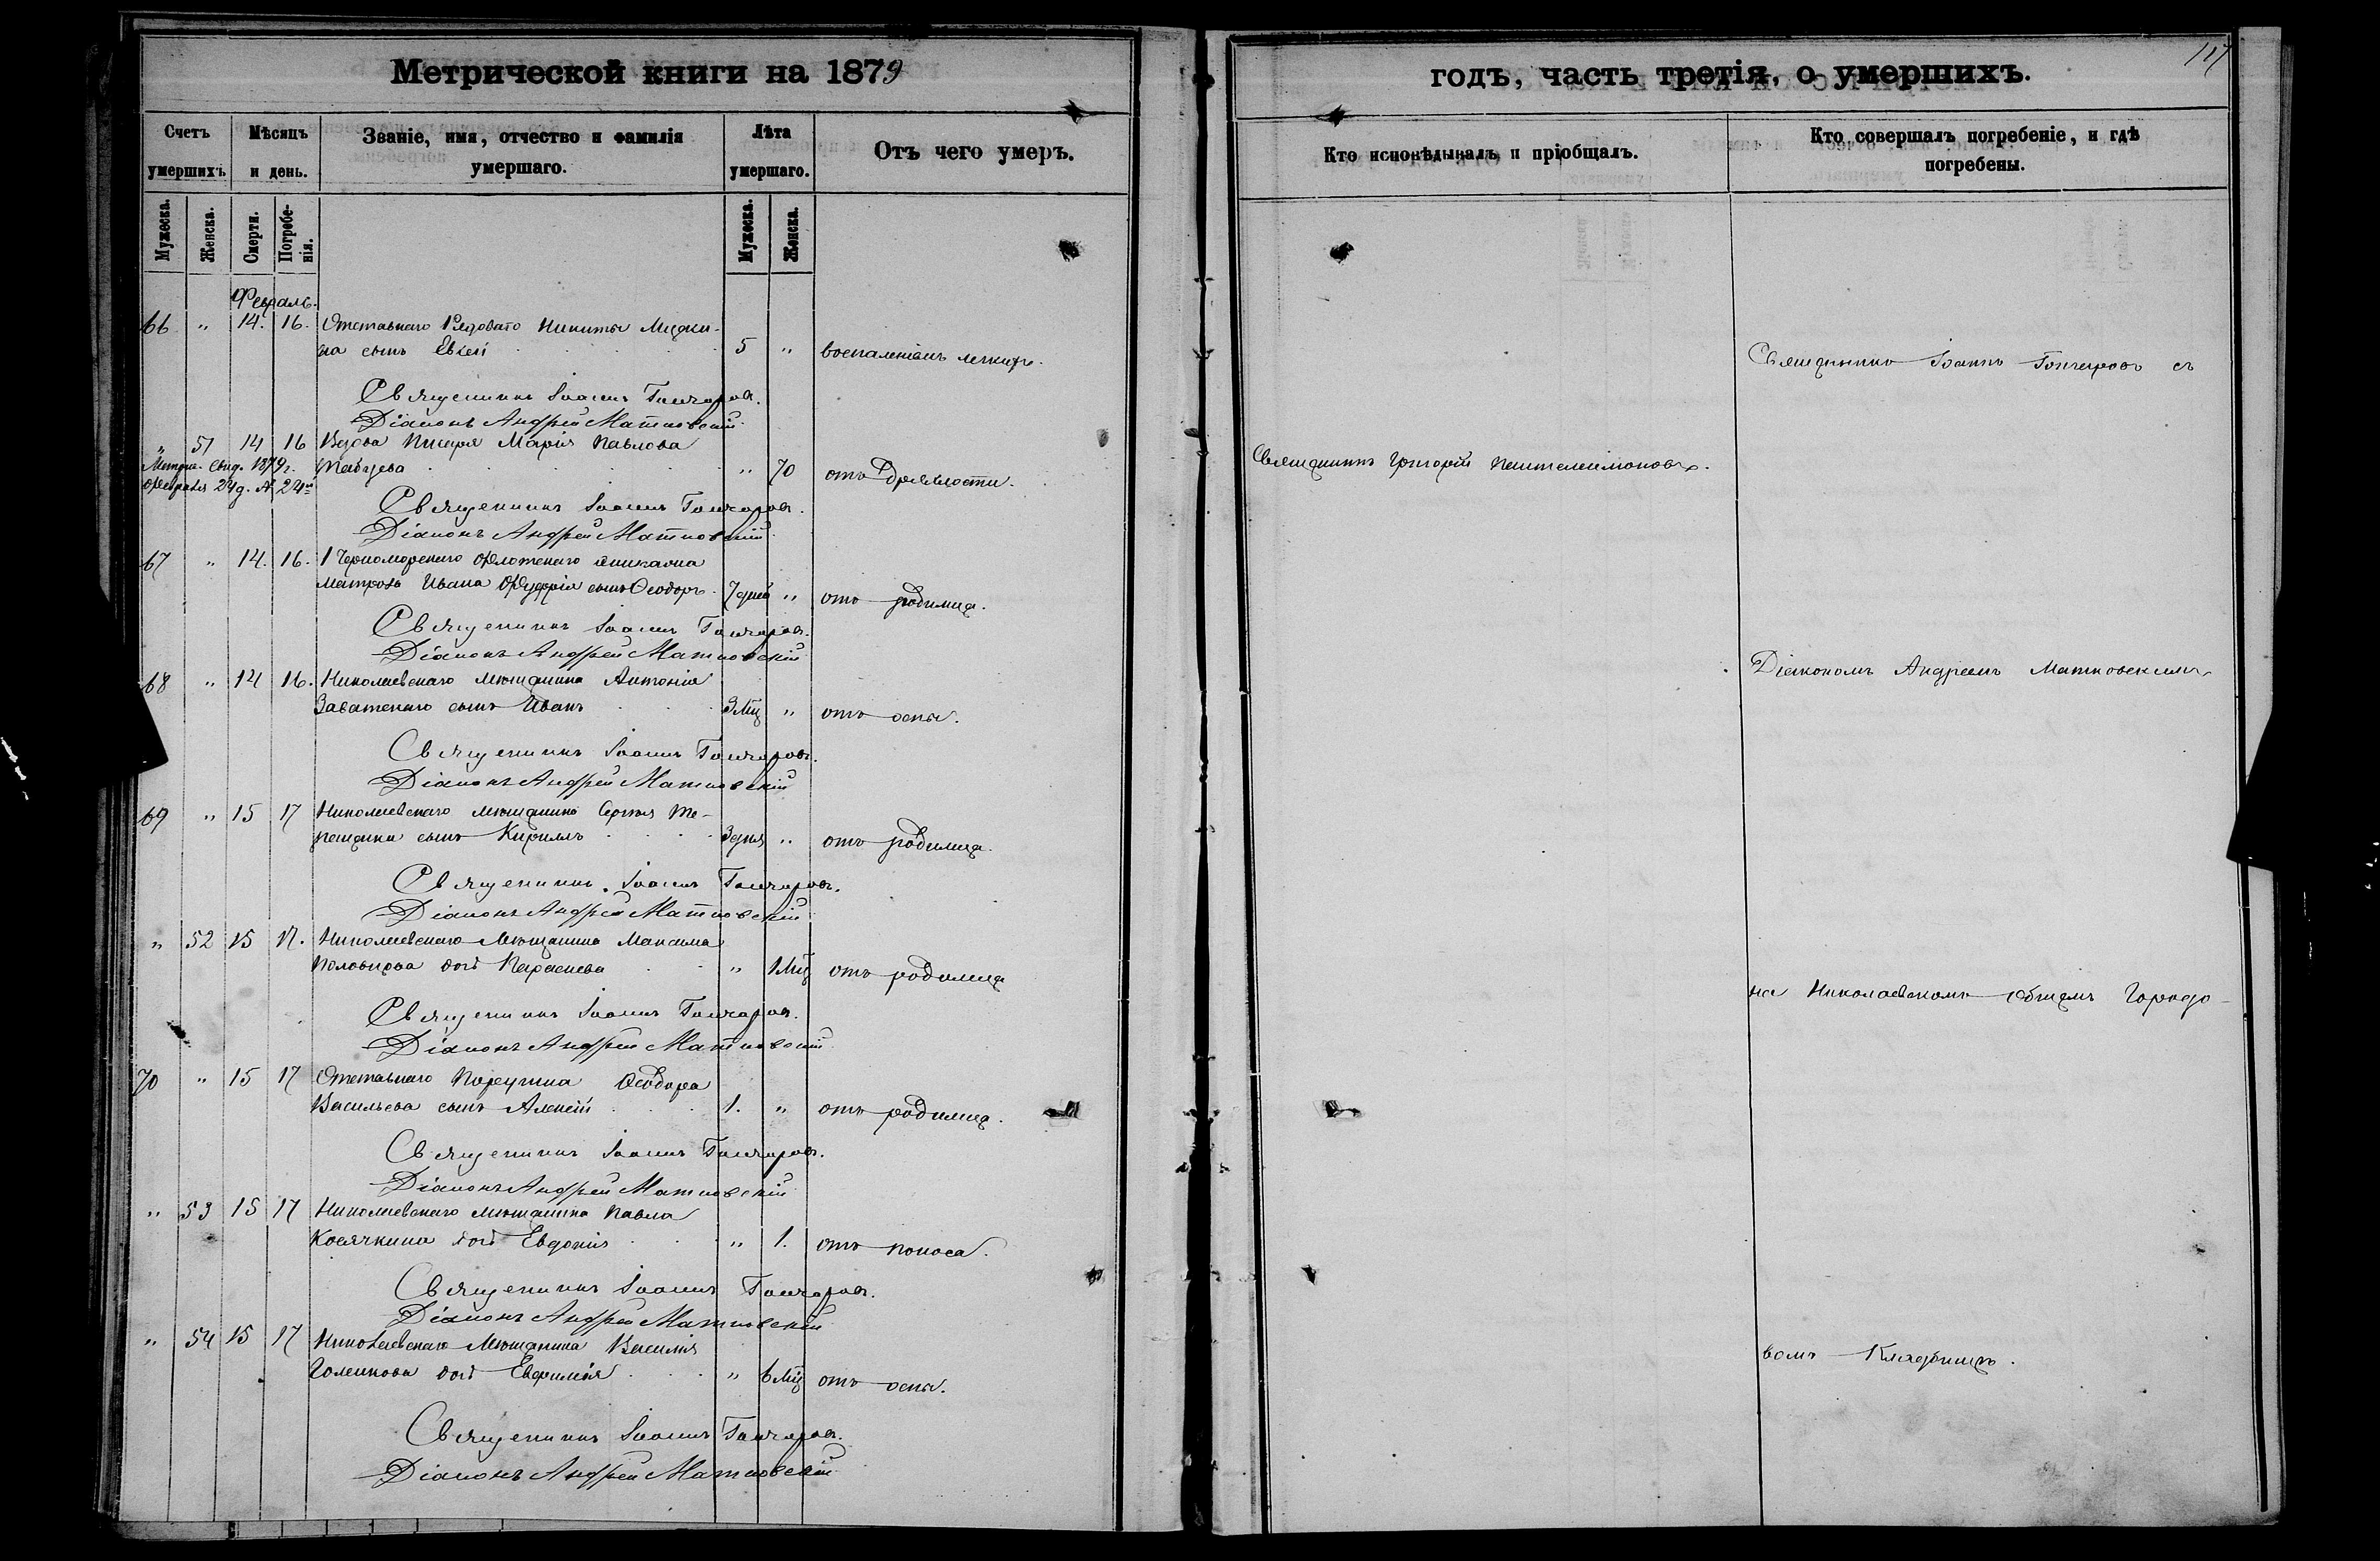 Метрической книги на 1879
годъ, часть третія, о умершихъ.
117
Счетъ умершихъ
Мѣсяцъ и день.
Званіе, имя, отчество и фамилія умершаго.
Лѣта умершаго.
Отъ чего умеръ.
Кто исповѣдывалъ и пріобщалъ.
Кто совершалъ погребеніе, и гдѣ погребены.
Мужеска.
Женска.
Смерти.
Погребенія.
Мужеска.
Женска.
Февраль.
66 " 14. 16. Отставнаго Рядоваго Никиты
на сынъ Евсей 5 " воспаленіемъ легкихъ.
Священникъ Іоаннъ Гончаровъ.
Діаконъ Андрей Матковскій
" 51 14 16 Вдова Писаря Марія Павлова
" 70 отъ древности.
Метрич. Свид. 1879 г.
Февраля 24 д. № 24й
Священникъ Григорій Пантелеимоновъ.
Священникъ Іоаннъ Гончаровъ.
Діаконъ Андрей Матковскій
67 " 14. 16. 1 Черноморскаго Флотскаго экипажа
матроса Ивана сынъ Ѳеодоръ 7 дней " отъ родимца.
Священникъ Іоаннъ Гончаровъ.
Діаконъ Андрей Матковскій
68 " 14 16. Николаевскаго мѣщанина Антонія
сынъ Иванъ 3 Мц " отъ оспы.
Священникъ Іоаннъ Гончаровъ.
Діаконъ Андрей Матковскій
69 " 15 17 Николаевскаго мѣщанина Сергѣя Те-
рещенка сынъ Кириллъ 3 дня " отъ родимца.
Священникъ Іоаннъ Гончаровъ.
Діаконъ Андрей Матковскій
" 52 15 17. Николаевскаго Мѣщанина Максима
дочь Параскева " 1 Мц отъ родимца
Священникъ Іоаннъ Гончаровъ.
Діаконъ Андрей Матковскій
70 " 15 17 Отставнаго Поручика Ѳеодора
Васильева сынъ Алексѣй 1. " отъ родимца.
Священникъ Іоаннъ Гончаровъ.
Діаконъ Андрей Матковскій
" 53 15 17 Николаевскаго мѣщанина Павла
Косячкина дочь Евдокія " 1. отъ поноса.
Священникъ Іоаннъ Гончаровъ.
Діаконъ Андрей Матковскій
" 54 15 17 Николаевскаго Мѣщанина Василія
Голикова дочь Евфимія " 6 Мц отъ оспы.
Священникъ Іоаннъ Гончаровъ.
Діаконъ Андрей Матковскій
Священникъ Іоаннъ Гончаровъ съ
Діакономъ Андреемъ Матковскимъ
на Николаевскомъ общемъ Городс-
комъ Кладбищѣ.